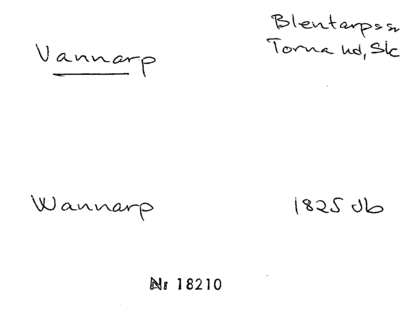 Vannarp
Blentarps sn
Torna hd, Sk
Wannarp
1825 Jb
Nr 18210